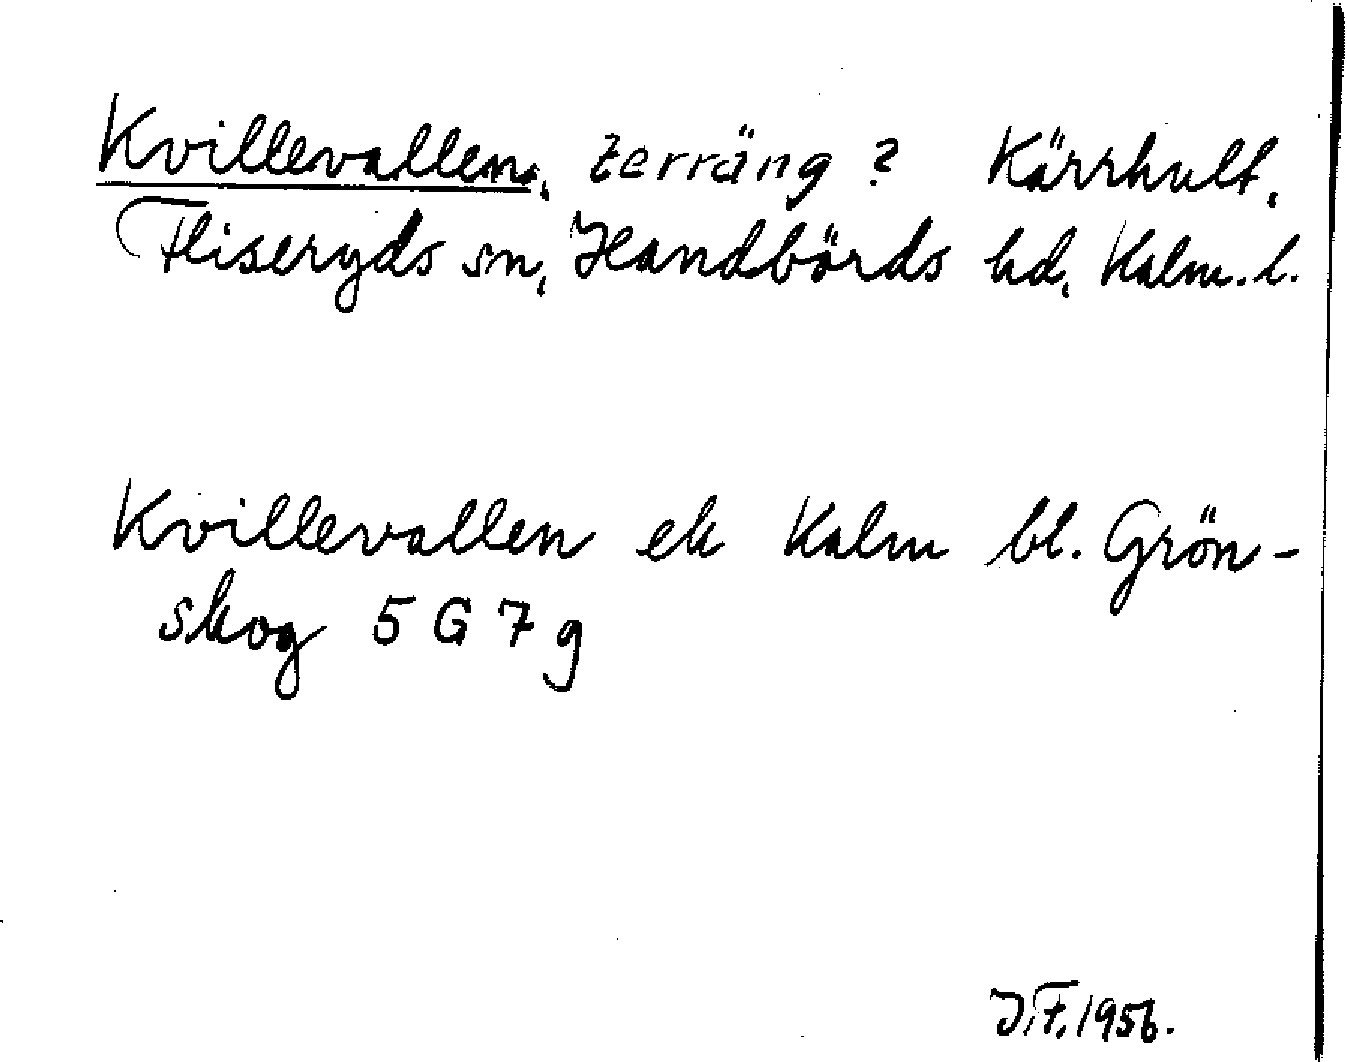 Kvillevallen, terräng? Kärrhult,
Fliseryds sn, Handbörds hd, Kalm. l.
Kvillevallen ek Kalm bl. Grön-
skog 5 G 7 g
J.F. 1956.